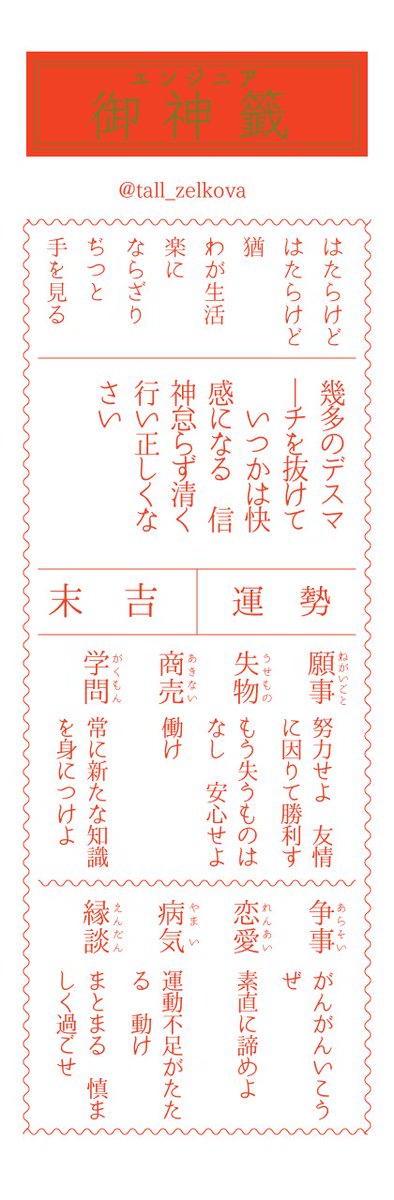 エンジニア
御神籤
@tall_zelkova
はたらけど
はたらけど
猶
わが生活
楽に
ならざり
ぢつと
手を見る
幾多のデスマ
ーチを抜けて
いつかは快
感になる　信
神怠らず清く
行い正しくな
さい
運勢
末吉
ねがいごと
願事
努力せよ　友情
に因りて勝利す
うせもの
失物
もう失うものは
なし　安心せよ
あきない
商売
働け
がくもん
学問
常に新たな知識
を身につけよ
あらそい
争事
がんがんいこう
ぜ
れんあい
恋愛
素直に諦めよ
やまい
病気
運動不足がたた
る　動け
えんだん
縁談
まとまる　慎ま
しく過ごせ